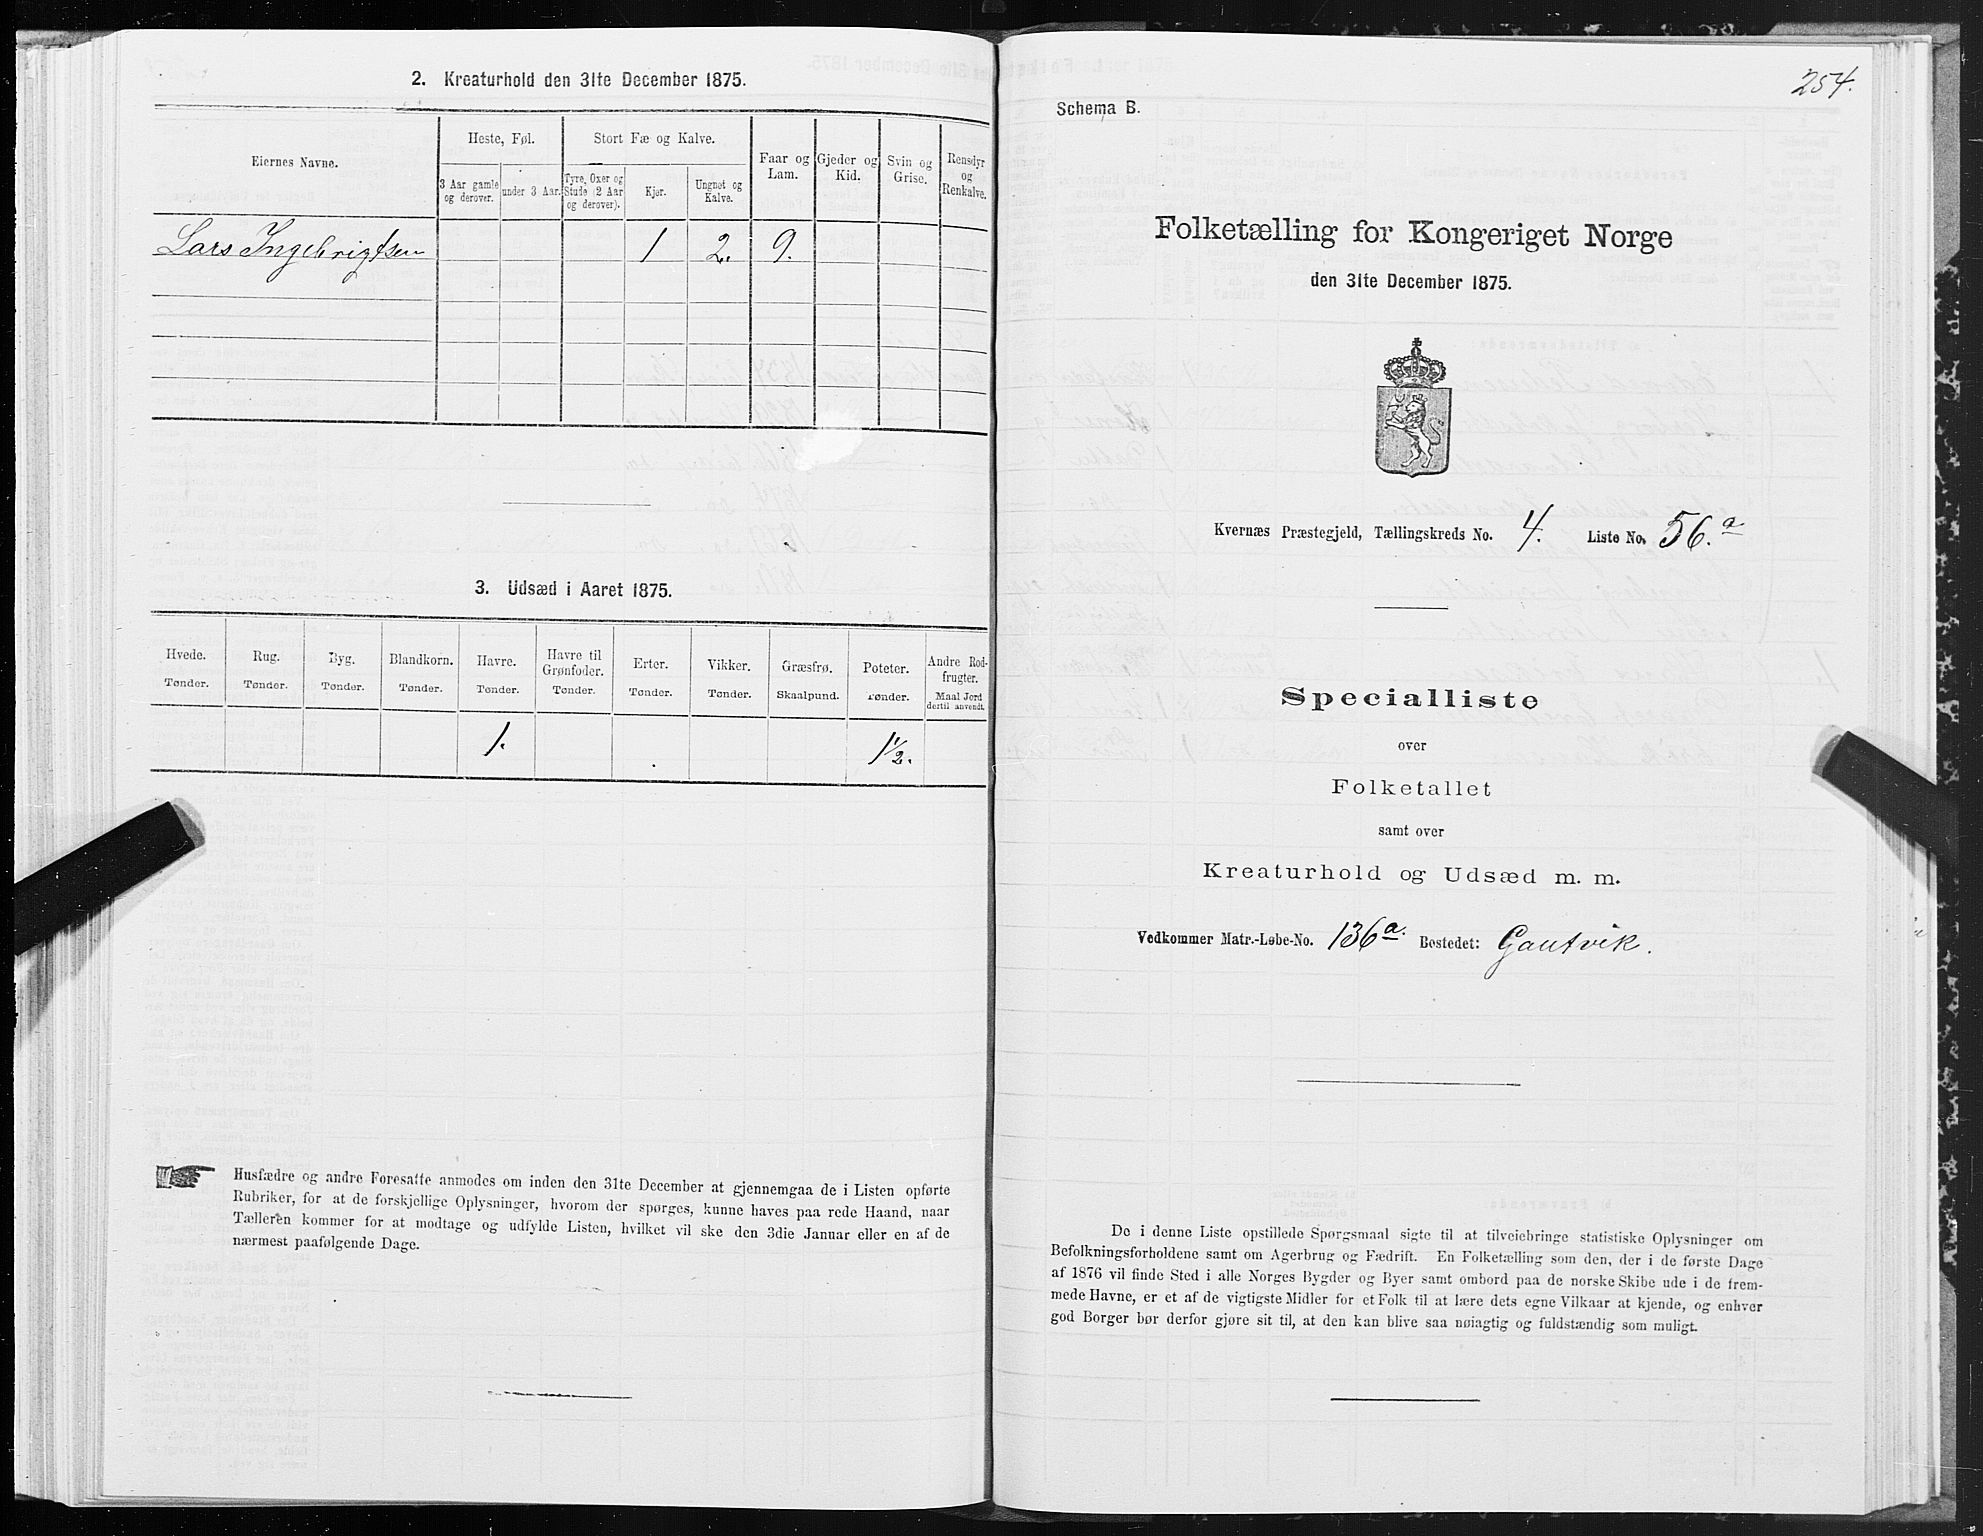 2. Kreaturhold den 31te December 1875.
Eiernes Navne.
Heste, Føl.
Stort Fæ og Kalve.
Faar og Lam.
Gjeder og Kid.
Svin og Grise.
Rensdyr og Renkalve.
3 Aar gamle og derover.
under 3 Aar.
Tyre, Oxer og Stude (2 Aar og derover).
Kjør.
Ungnøt og Kalve.
Lars Ingebrigtsen 1 2. 9.
3. Udsæd i Aaret 1875.
Hvede. Rug. Byg. Blandkorn. Havre. Havre til Grønfoder. Erter. Vikker. Græsfrø. Poteter. Andre Rodfrugter.
Tønder. Tønder. Tønder. Tønder. Tønder. Tønder. Tønder. Tønder. Skaalpund. Tønder. Maal Jord dertil anvendt.
1. 1½.
Husfædre og andre Foresatte anmodes om inden den 31te December at gjennemgaa de i Listen opførte
Rubriker, for at de forskjellige Oplysninger, hvorom der spørges, kunne haves paa rede Haand, naar
Tælleren kommer for at modtage og udfylde Listen, hvilket vil ske den 3die Januar eller en af de
nærmest paafølgende Dage.
254.
Schema B.
Folketælling for Kongeriget Norge
den 31te December 1875.
Kvernæs Præstegjeld, Tællingskreds No. 4. Liste No. 56.a
Specialliste
over
Folketallet
samt over
Kreaturhold og Udsæd m. m.
Vedkommer Matr.-Løbe-No. 136a. Bostedet: Gautvik.
De i denne Liste opstillede Spørgsmaal sigte til at tilveiebringe statistiske Oplysninger om
Befolkningsforholdene samt om Agerbrug og Fædrift. En Folketælling som den, der i de første Dage
af 1876 vil finde Sted i alle Norges Bygder og Byer samt ombord paa de norske Skibe ude i de frem-
mede Havne, er et af de vigtigste Midler for et Folk til at lære dets egne Vilkaar at kjende, og enhver
god Borger bør derfor gjøre sit til, at den kan blive saa nøiagtig og fuldstændig som muligt.